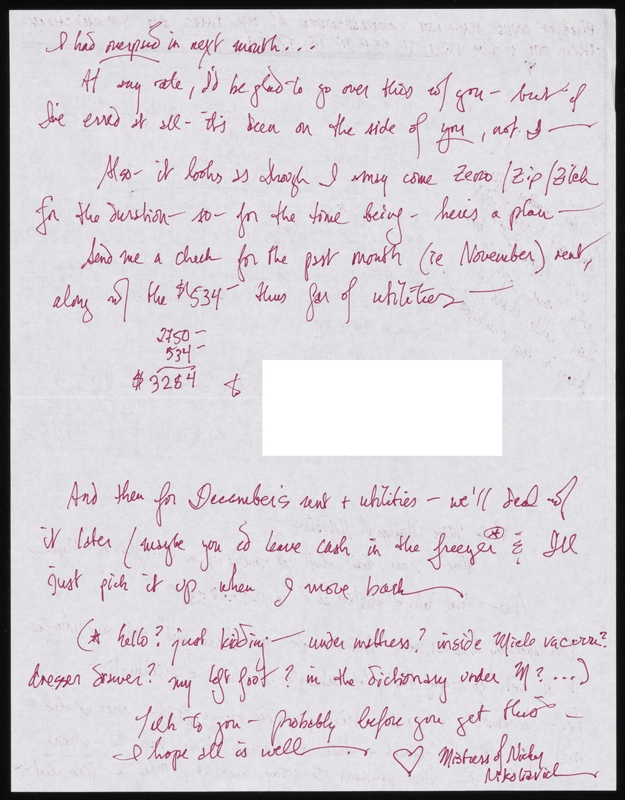 I had overpaid in next month...
At any rate, I'd be glad to go over this w/ you - but if
I've erred at all - it's been on the side of you, not I —
Also - it looks as though I may come Zero / Zip / Zilch
for the duration - so - for the time being - here's a plan —
Send me a check for the past month (ie November) rent,
along w/ the $534 - thus far of utilities —
2750 -
534 -
$ 3284 to
And then for December's rent + utilities - we'll deal w/
it later / maybe you cd leave cash in the freezer * & I'll
just pick it up when I move back
(* hello? just kidding — under mattress? inside Miele vacuum?
dresser drawer? my left foot? in the dictionary under M? ...)
Talk to you - probably before you get this -
I hope all is well ♡ Mistress of Nicky